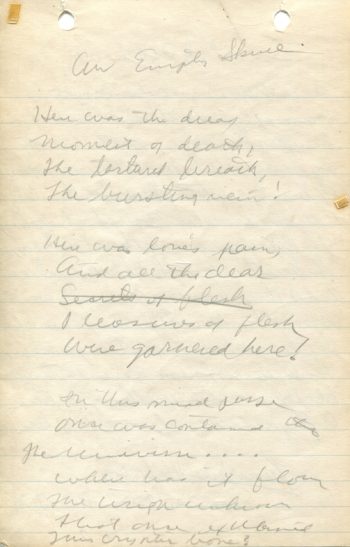 An Empty Skull.
Here was the dread
Moment of death,
The tortured breath,
The bursting vein!
Here was love's pain,
And all the dear
Secrets of flesh
Pleasures of flesh
Were garnered here!
In this mind
once was contained the
The Universe....
Where has it flown
The
That once
This crystal bone?